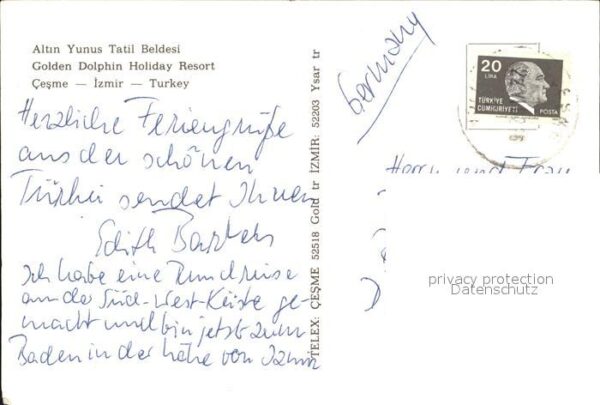 Altın Yunus Tatil Beldesi
Golden Dolphin Holiday Resort
Çeşme — İzmir — Turkey
Herzliche Feriengrüße
aus der schönen
Türkei sendet Ihnen
Edith
Ich habe eine Rundreise
an der Süd-West-Küste ge-
macht und bin jetzt zum
Baden in der Nähe von Izmir
TELEX: ÇEŞME 52518 Gold tr İZMİR: 52203 Ysar tr
Germany
20
LİRA
TÜRKİYE
CUMHURİYETİ
POSTA
Herrn und Frau
D
privacy protection
Datenschutz